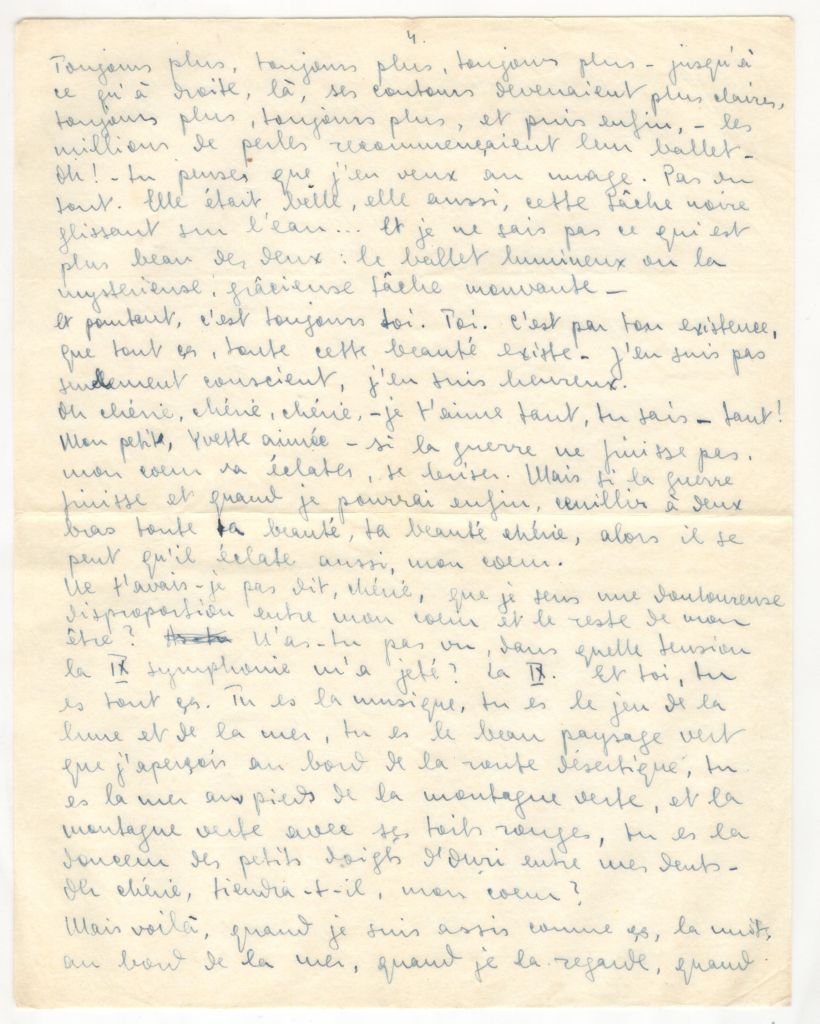 4.
Toujours plus, toujours plus, toujours plus – jusqu'à
ce qu'à droite, là, ses contours devenaient plus claires,
toujours plus, toujours plus, et puis enfin, – les
millions de perles recommençaient leur ballet –
Oh! – tu penses que j'en veux au nuage. Pas du
tout. Elle était belle, elle aussi, cette tâche noire
glissant sur l'eau... Et je ne sais pas ce qui est
plus beau des deux : le ballet lumineux ou la
mystérieuse, grâcieuse tâche mouvante –
et pourtant, c'est toujours toi. Toi. C'est par ton existence,
que tout ça, toute cette beauté existe – j'en suis pas
seulement conscient, j'en suis heureux.
Oh chérie, chérie, chérie, – je t'aime tant, tu sais – tant!
Mon petit, Yvette aimée – si la guerre ne finisse pas,
mon coeur va éclater, se briser. Mais si la guerre
finisse et quand je pourrai enfin, cueillir à deux
bras toute ta beauté, ta beauté chérie, alors il se
peut qu'il éclate aussi, mon coeur.
Ne t'avais-je pas dit, chérie, que je sens une douloureuse
disproportion entre mon coeur et le reste de mon
être? N'as-tu pas vu, dans quelle tension
la IX symphonie m'a jeté? La IX. Et toi, tu
es tout ça. Tu es la musique, tu es le jeu de la
lune et de la mer, tu es le beau paysage vert
que j'aperçois au bord de la route désertique, tu
es la mer aux pieds de la montagne verte, et la
montagne verte avec ses toits rouges, tu es la
douceur des petits doigts d'Ouri entre mes dents –
Oh chérie, tiendra-t-il, mon coeur?
Mais voilà, quand je suis assis comme ça, la nuit,
au bord de la mer, quand je la regarde, quand